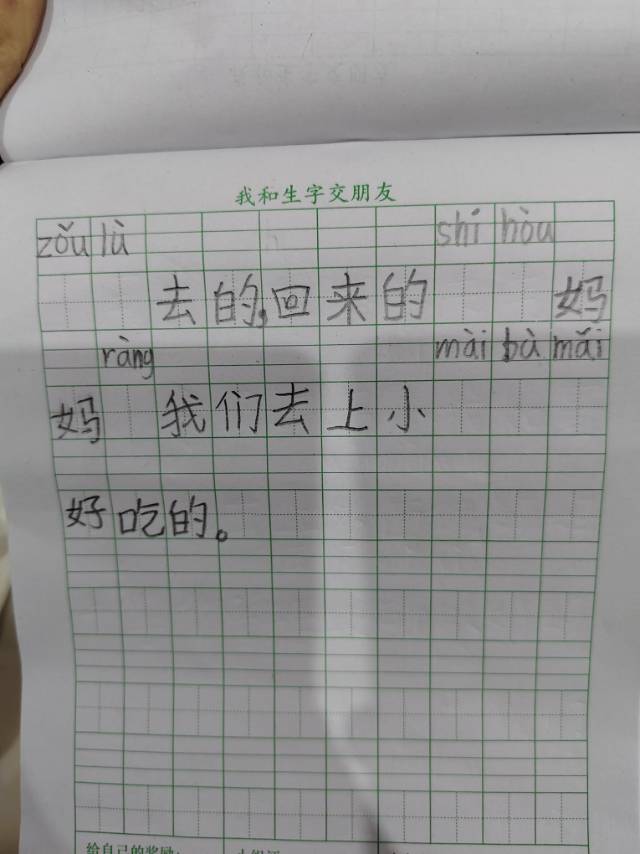 我和生字交朋友
zǒu lù shí hòu
去的,回来的 妈
ràng mài bà mǎi
妈 我们去上小
好吃的。
给自己的奖励: